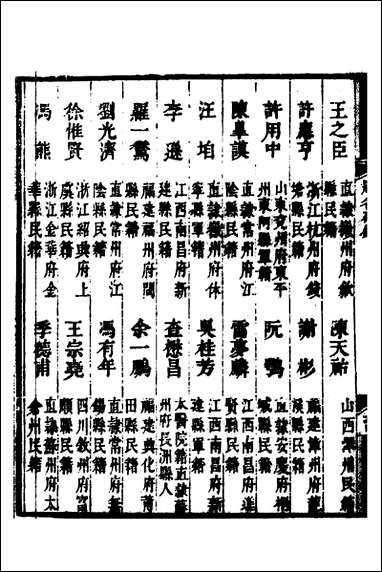 王之臣 直隸徽州府歙縣民籍
陳天祐 山西澤州民籍
許應亨 浙江杭州府錢塘縣民籍
謝彬 福建漳州府龍溪縣民籍
許用中 山東兗州府東平州東阿縣軍籍
阮鶚 直隸安慶府桐城縣民籍
陳皋謨 直隸常州府江陰縣民籍
雷夢麟 江西南昌府進賢縣民籍
汪垍 直隸徽州府休寧縣軍籍
吳桂芳 江西南昌府新建縣軍籍
李遜 江西南昌府新建縣民籍
查懋昌 太醫院籍直隸蘇州府長洲縣人
羅一鶩 福建福州府閩縣民籍
余一鵬 福建興化府莆田縣民籍
劉光濟 直隸常州府江陰縣民籍
馮有年 直隸常州府無錫縣民籍
徐惟賢 浙江紹興府上虞縣民籍
王宗堯 四川敘州府富順縣民籍
馮熊 浙江金華府金華縣民籍
季德甫 直隸蘇州府太倉州民籍